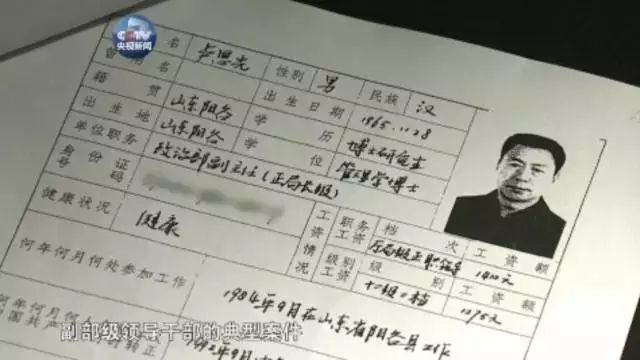 CCTV
央视新闻
名 卢恩光 性别 男 民族 汉
曾用名
籍贯 山东阳谷 出生日期 1965.11.28
出生地 山东阳谷 学历 博士研究生
单位职务 政治部副主任(正局长级) 学位 管理学博士
身份证号码
工资情况 职务工资 档次 工资额
正职 1410元
健康状况 健康
级别工资 级别 工资额
1275元
何年何月何处参加工作 1984年9月在山东省阳谷县工作
何年何月
中国共产 转正
1992年9月
副部级领导干部的典型案件